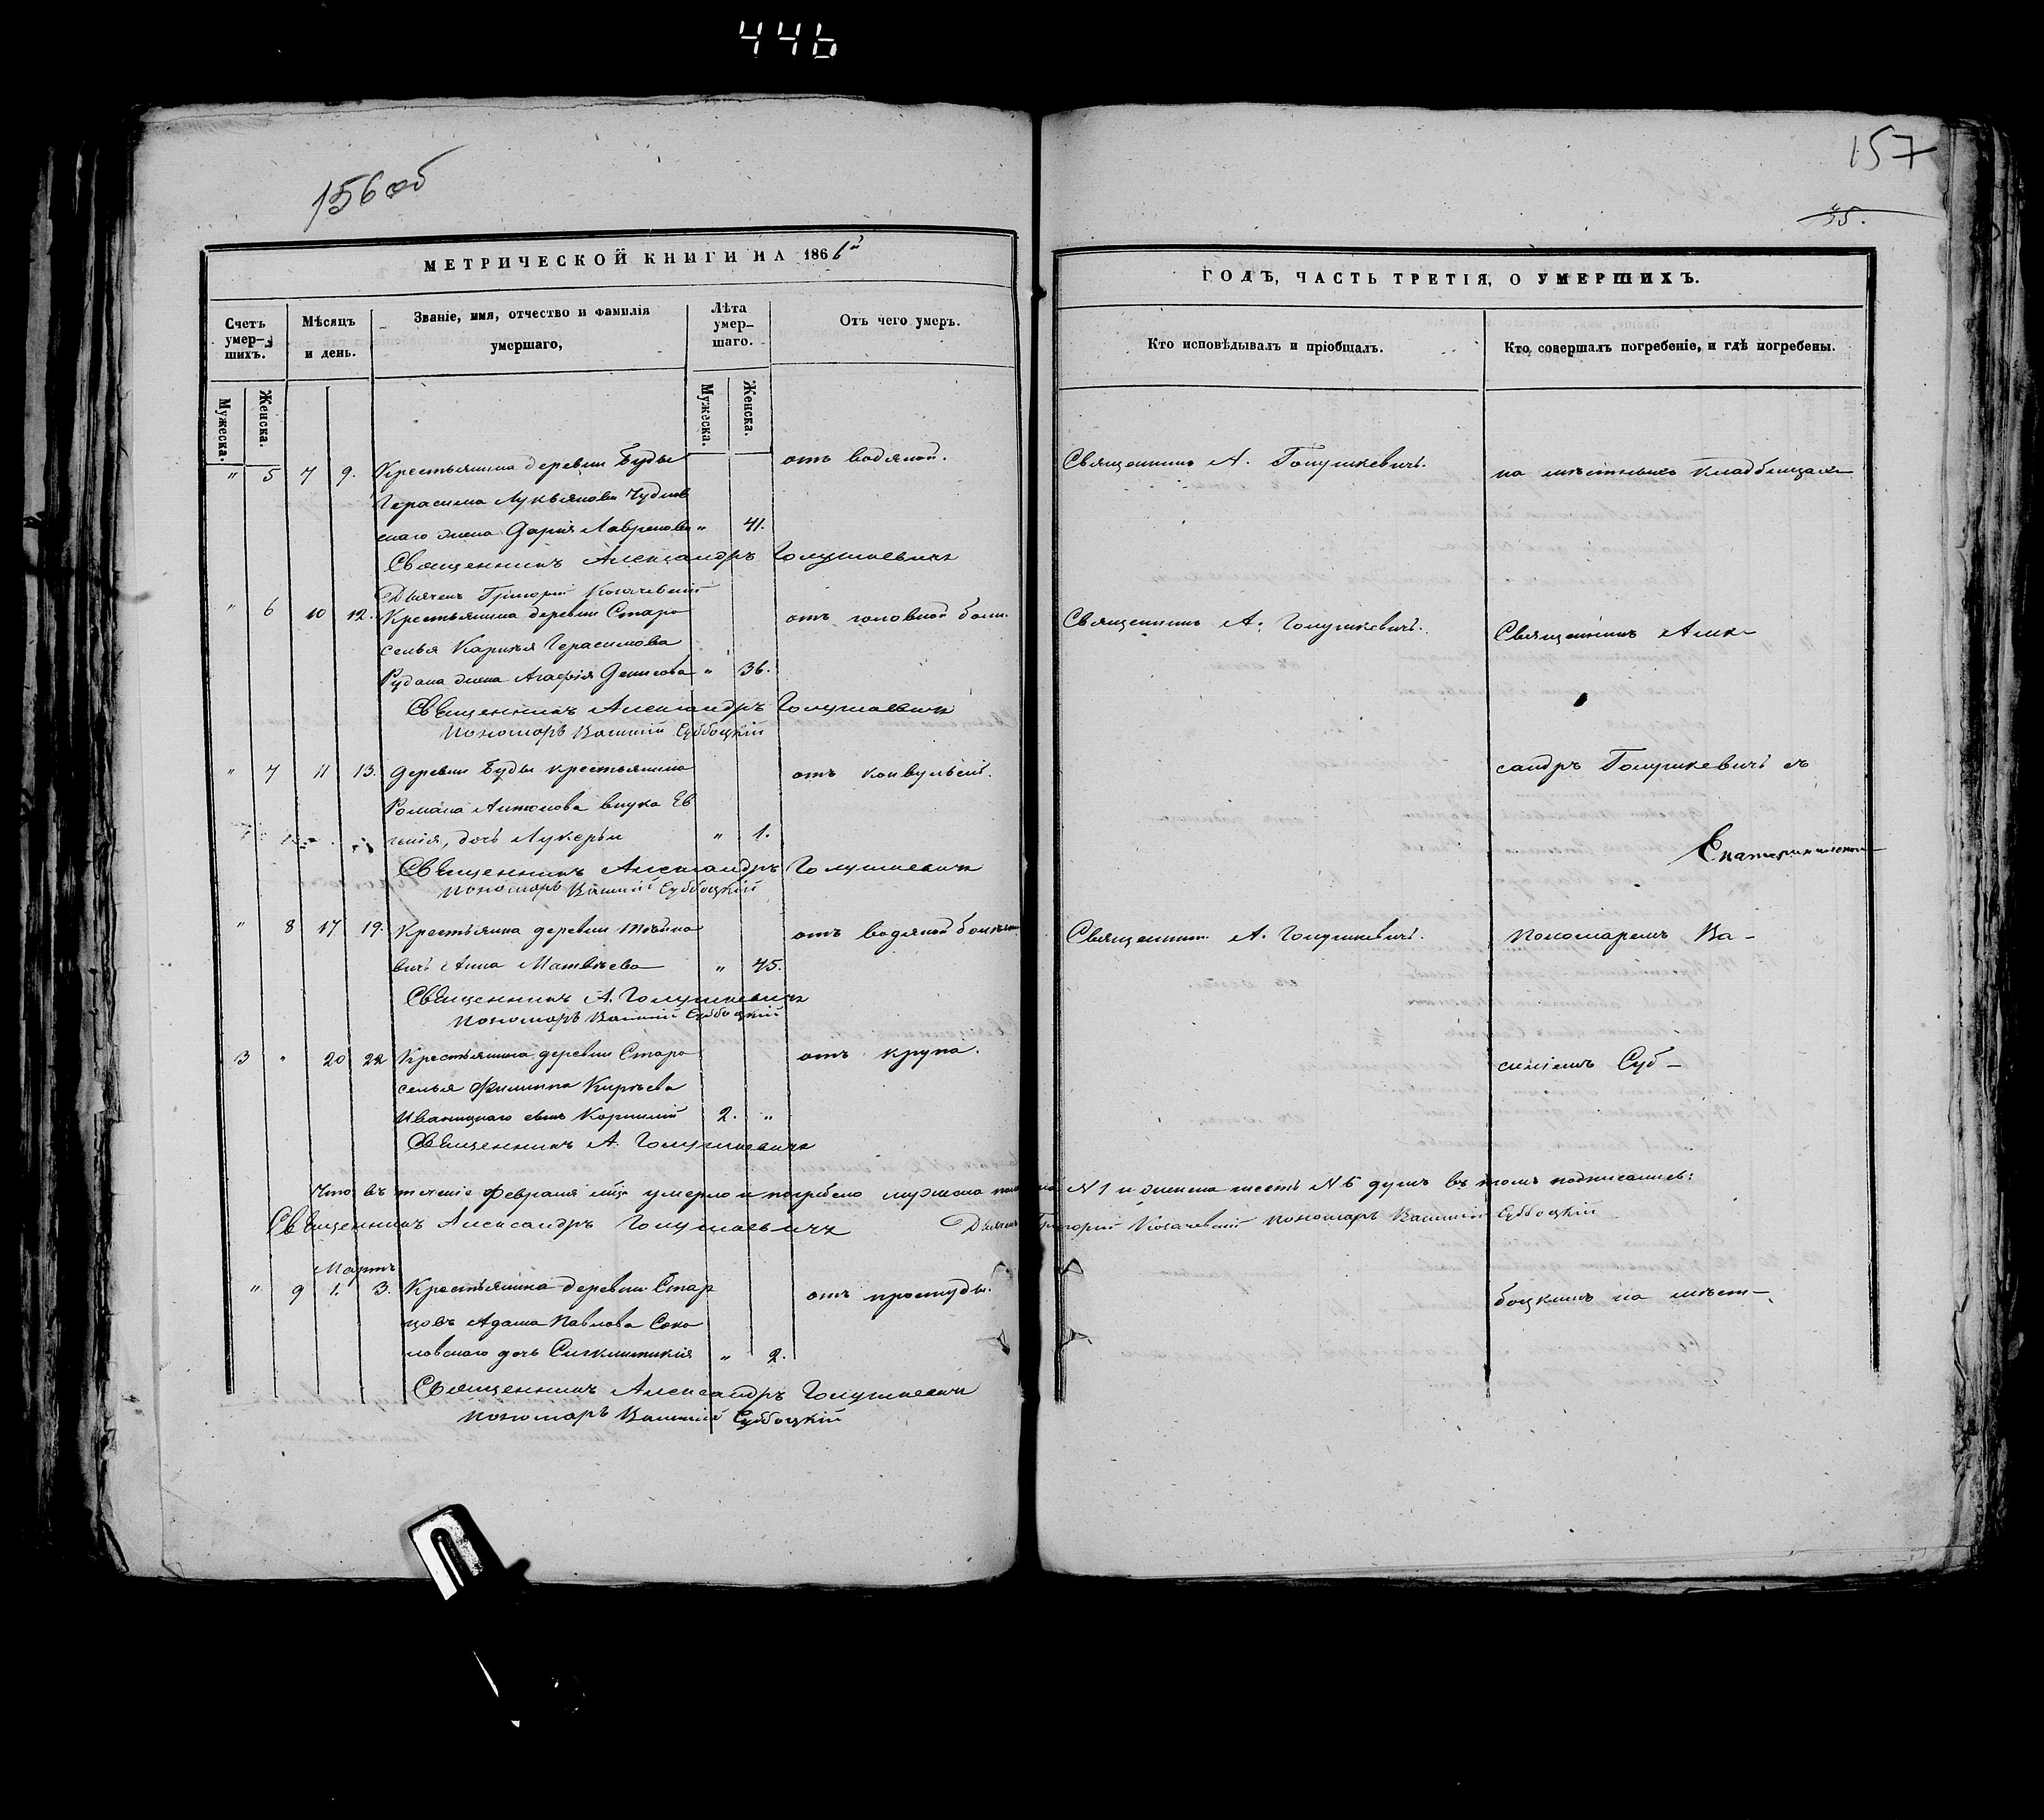 446
156 об
157
35.
МЕТРИЧЕСКОЙ КНИГИ НА 1866й
ГОДЪ, ЧАСТЬ ТРЕТІЯ, О УМЕРШИХЪ.
Счетъ умер-шихъ.
Мѣсяцъ и день.
Званіе, имя, отчество и фамилія умершаго,
Лѣта умер-шаго.
Отъ чего умеръ.
Кто исповѣдывалъ и пріобщалъ.
Кто совершалъ погребеніе, и гдѣ погребены.
Мужеска. Женска.
Мужеска. Женска.
" 5 7 9. Крестьянина деревни Буды отъ водяной. Священникъ А. Голушкевичъ. на мѣстныхъ кладбищахъ
Герасима Лукьянова Чуднов
скаго жена Дарія Лавренова " 41.
Священникъ Александръ Голушкевичъ
Дьячекъ Григорій
" 6 10 12. Крестьянина деревни Старо отъ головной боли. Священникъ А. Голушкевичъ. Священникъ Алек-
селья Карнѣя Герасимова
Рудака жена Агафія Денисова " 36.
Священникъ Александръ Голушкевичъ
Пономарь Василій Субоцкій
" 7 11 13. Деревни Буды крестьянина отъ конвульсій. сандръ Голушкевичъ съ
Романа Антонова внука Ев
генія, дочь Лукерьи " 1.
Священникъ Александръ Голушкевичъ
Пономарь Василій Субоцкій
" 8 17 19. Крестьянка деревни отъ водяной болѣзни Священникъ А. Голушкевичъ. Пономаремъ Ва-
вичъ Анна Матвѣева " 45.
Священникъ А. Голушкевичъ
Пономарь Василій Субоцкій
3 " 20 22 Крестьянина деревни Старо отъ крупа. силіемъ Суб-
селья Филиппа Кирѣева
Иваницкаго сынъ Корнилій 2. "
Священникъ А. Голушкевичъ
Что въ теченіе Февраля мѣсяца умерло и погребено мужеска пола № 1 и женска шесть № 6 душъ въ томъ подписались:
Священникъ Александръ Голушкевичъ Дьячекъ Григорій Пономарь Василій Субоцкій
Мартъ
" 9 1. 3. Крестьянина деревни Стар отъ простуды. боцкимъ на мѣст-
цовъ Адама Павлова Соко
ловскаго дочь " 2.
Священникъ Александръ Голушкевичъ
Пономарь Василій Субоцкій